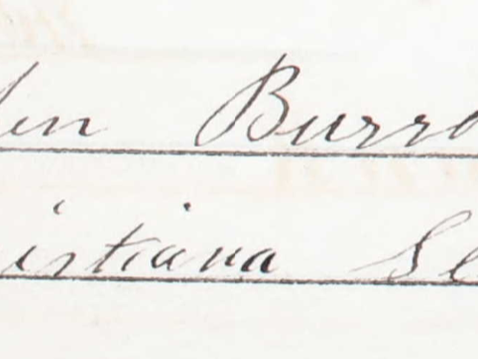 en Burro
istiana Se